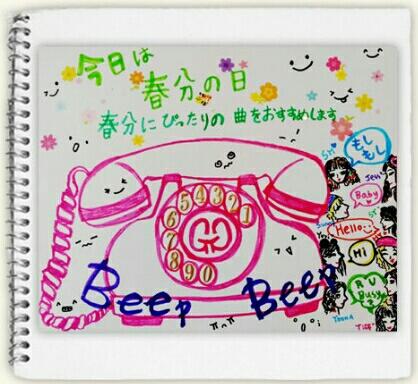 今日は
春分の日
春分にぴったりの曲をおすすめします
もしもし
Jeh
Baby
Hello
Hi
R U
Busy
?
5 4 3 2 1
6
7
8
9
0
Beep Beep